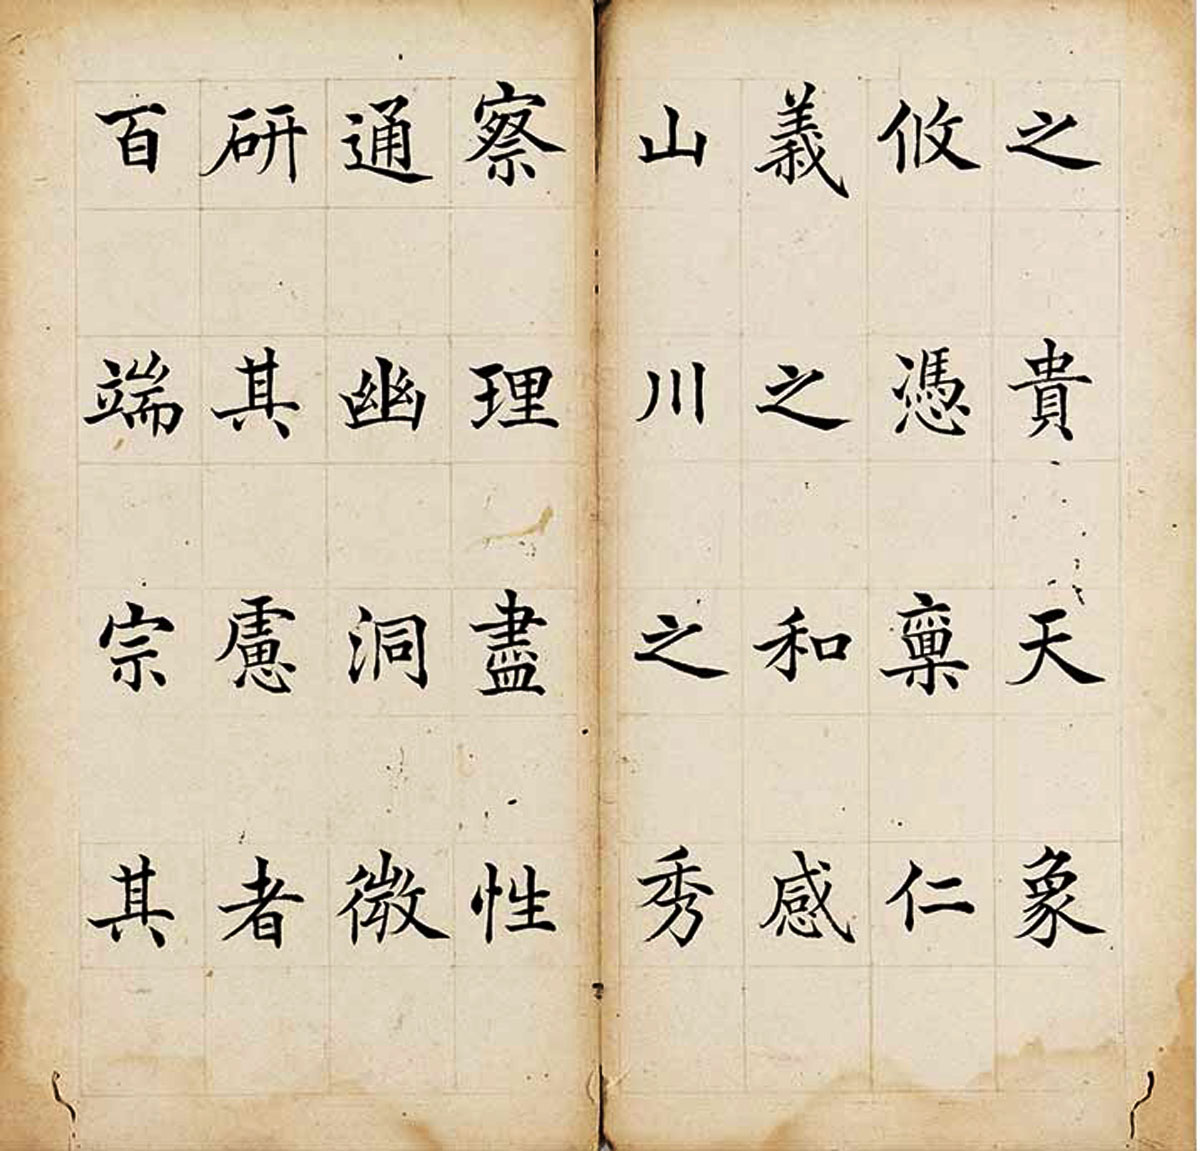 之貴天象
攸憑稟仁
義之和感
山川之秀
察理盡性
通幽洞微
研其慮者
百端宗其